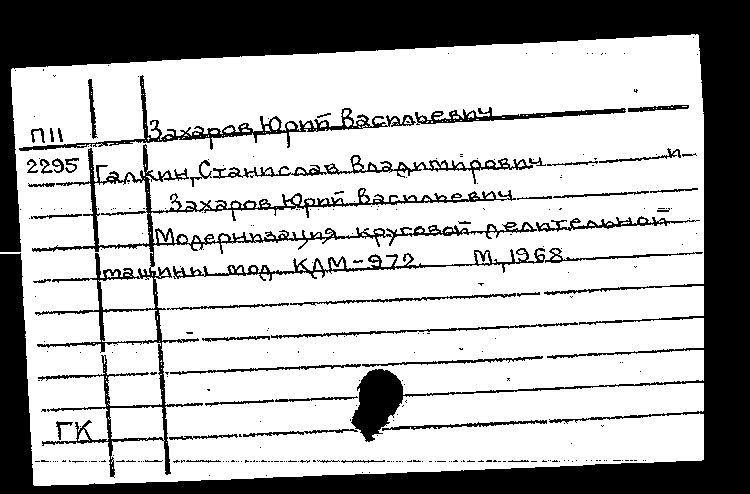 Захаров, Юрий Васильевич
П11
2295 Галкин, Станислав Владимирович и
Захаров, Юрий Васильевич
Модернизация круговой делительной
машины мод. КДМ-972. М., 1968.
ГК